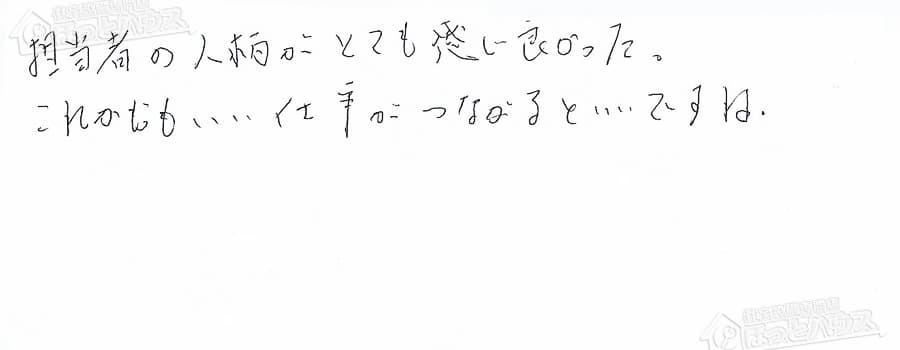 担当者の人柄がとても感じ良かった。
これからもいい仕事がつながるといいですね.
ほっとハウス